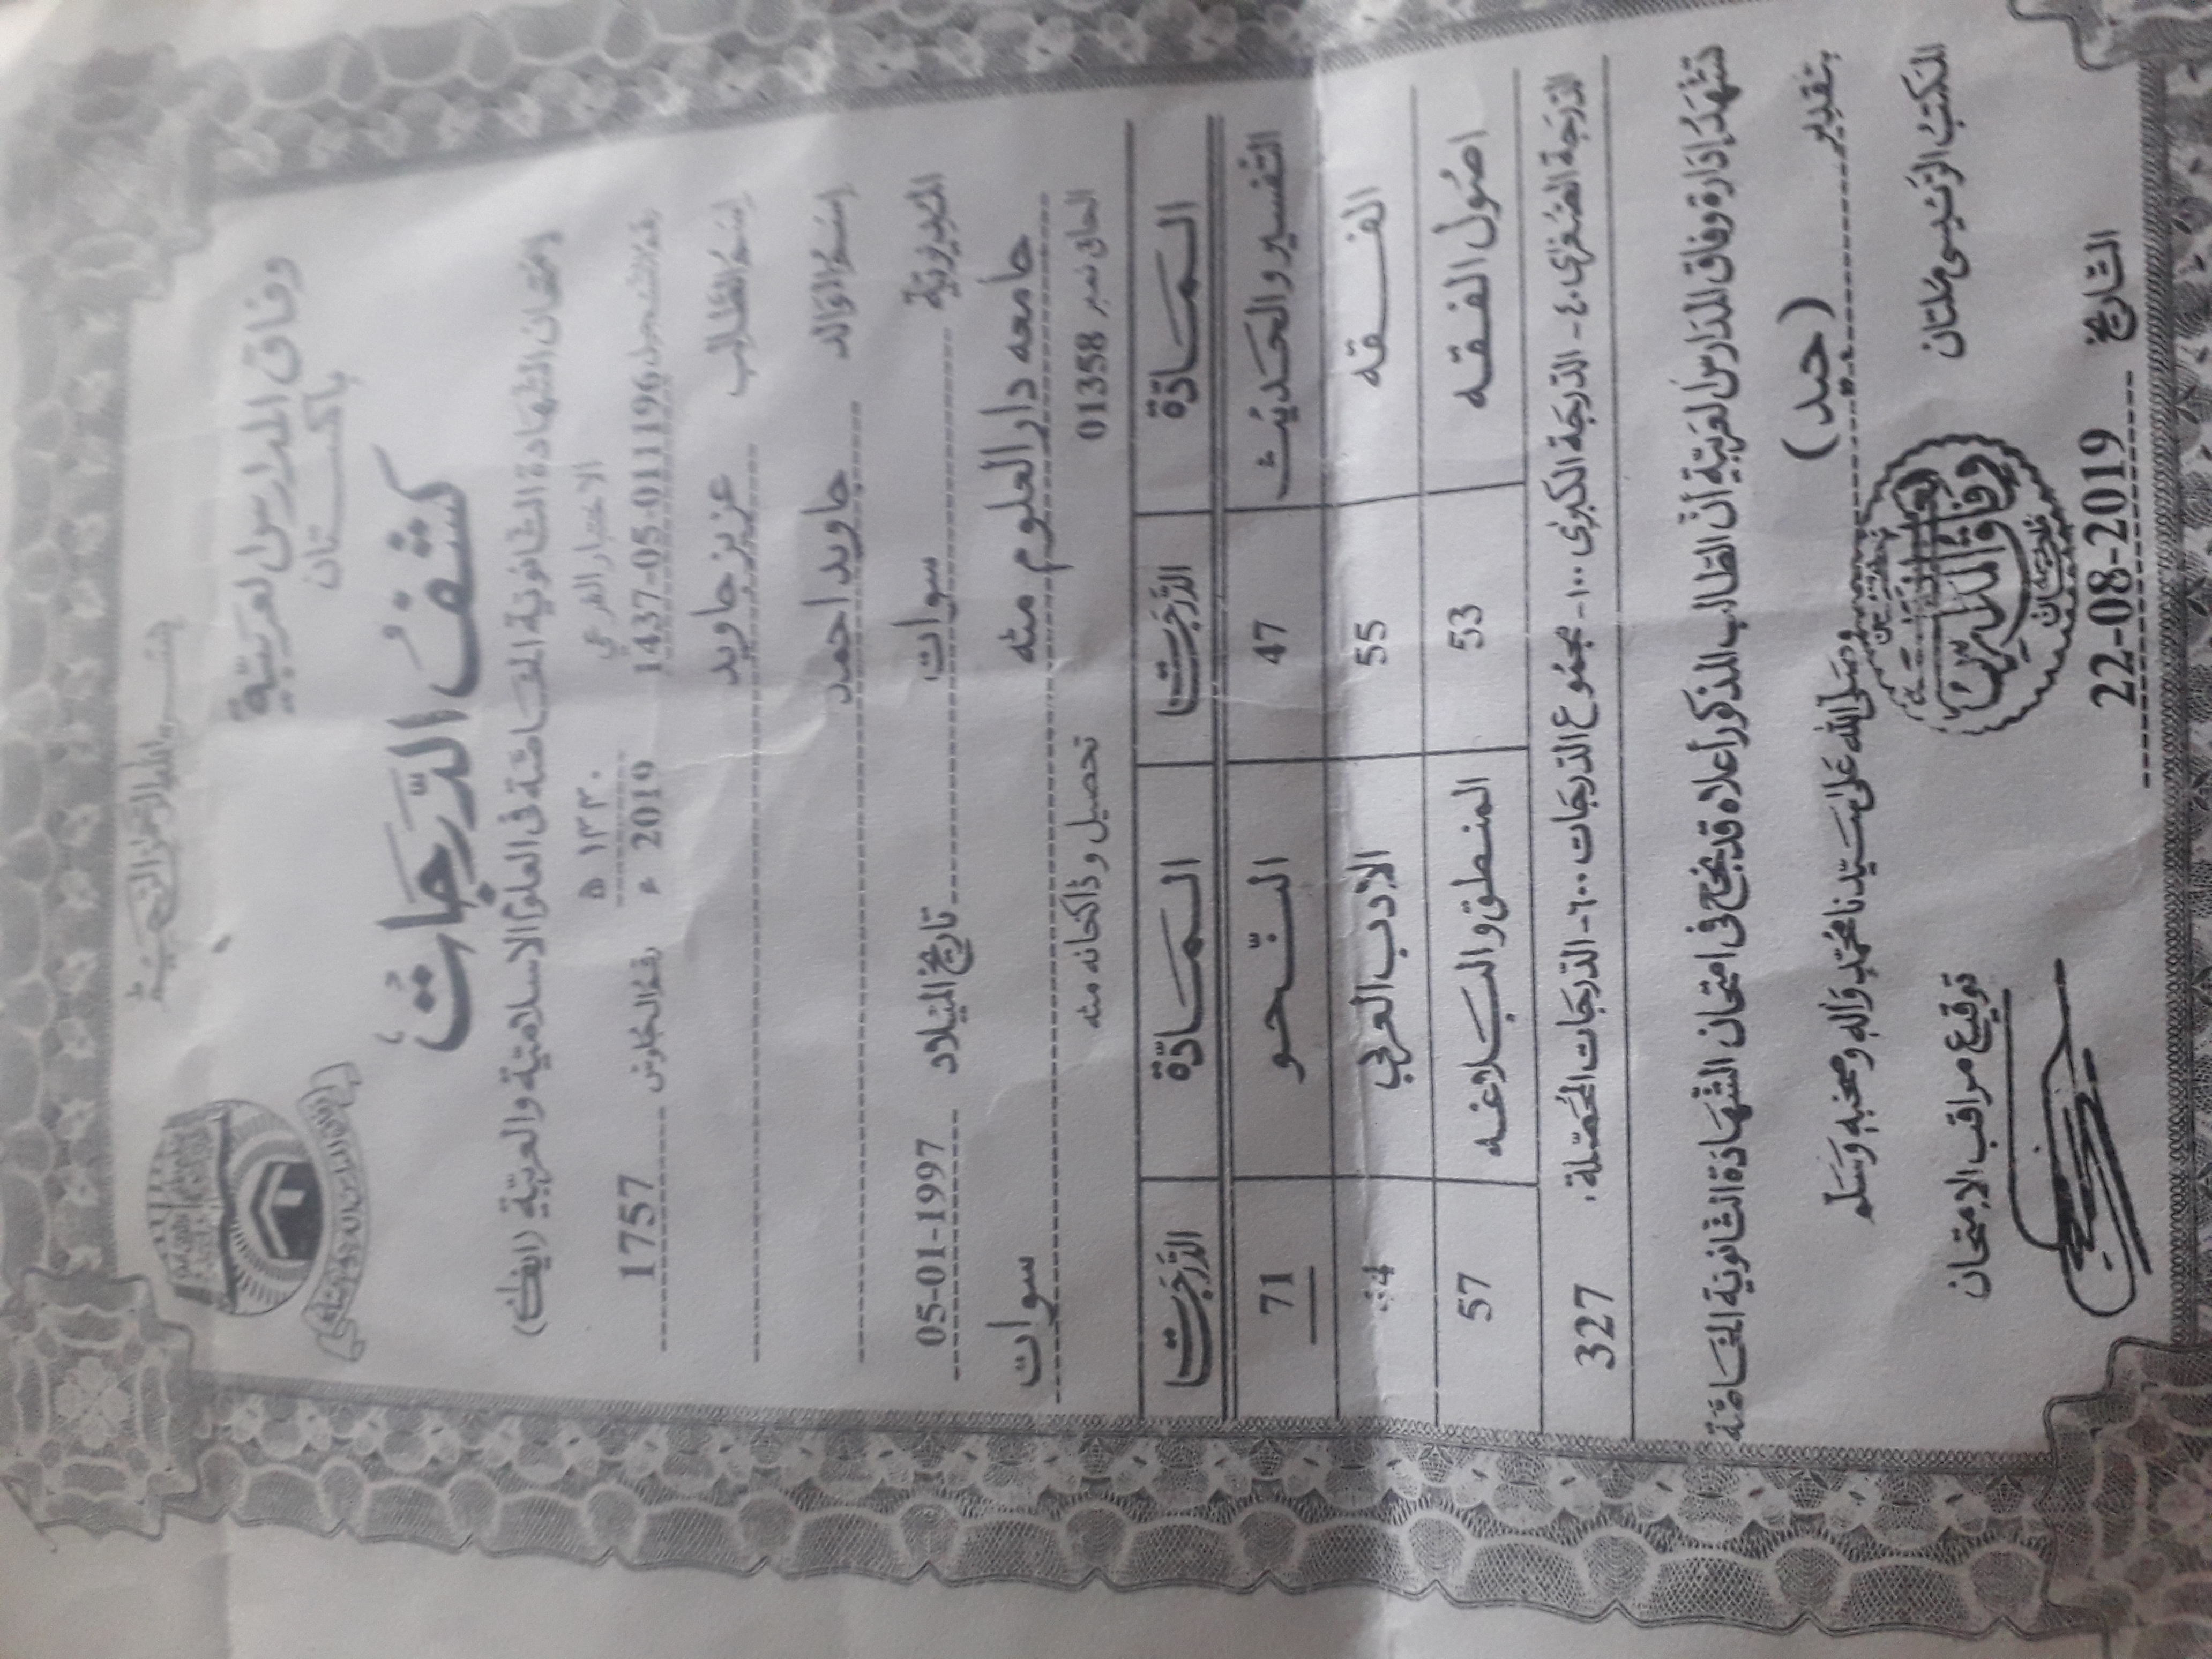 بسم الله الرحمن الرحيم
وفاق المدارس العربية
باكستان
كشف الدرجات
امتحان الشهادة الثانوية الخاصة في العلوم الاسلامية والعربية (ايف اے)
الاختبار الفرعي ١٣٣٠ ه
رقم التسجيل 1437-05-011196 2019 ء رقم الجلوس 1757
اسم الطالب عزيز جاويد
اسم الوالد جاويد احمد
المديرية سوات تاريخ الميلاد 05-01-1997
جامعه دارالعلوم مٹه سوات
الحاق نمبر 01358 تحصيل و ڈاکخانه مٹه
المادة الدرجات المادة الدرجات
التفسير والحديث 47 النحو 71
الفقه 55 الادب العربي
اصول الفقه 53 المنطق والبلاغه 57
الدرجة الصغرى ٤٠ - الدرجة الكبرى ١٠٠ - مجموع الدرجات ٦٠٠ - الدرجات المحصلة : 327
تشهد إدارة وفاق المدارس العربية أن الطالب المذكور أعلاه قد نجح في امتحان الشهادة الثانوية الخاصة
بتقدير (جيد)
وصلى الله على سيدنا محمد وآله وصحبه وسلم
المكتب الرئيسي ملتان توقيع مراقب الامتحان
وفاق المدارس
التاريخ 22-08-2019